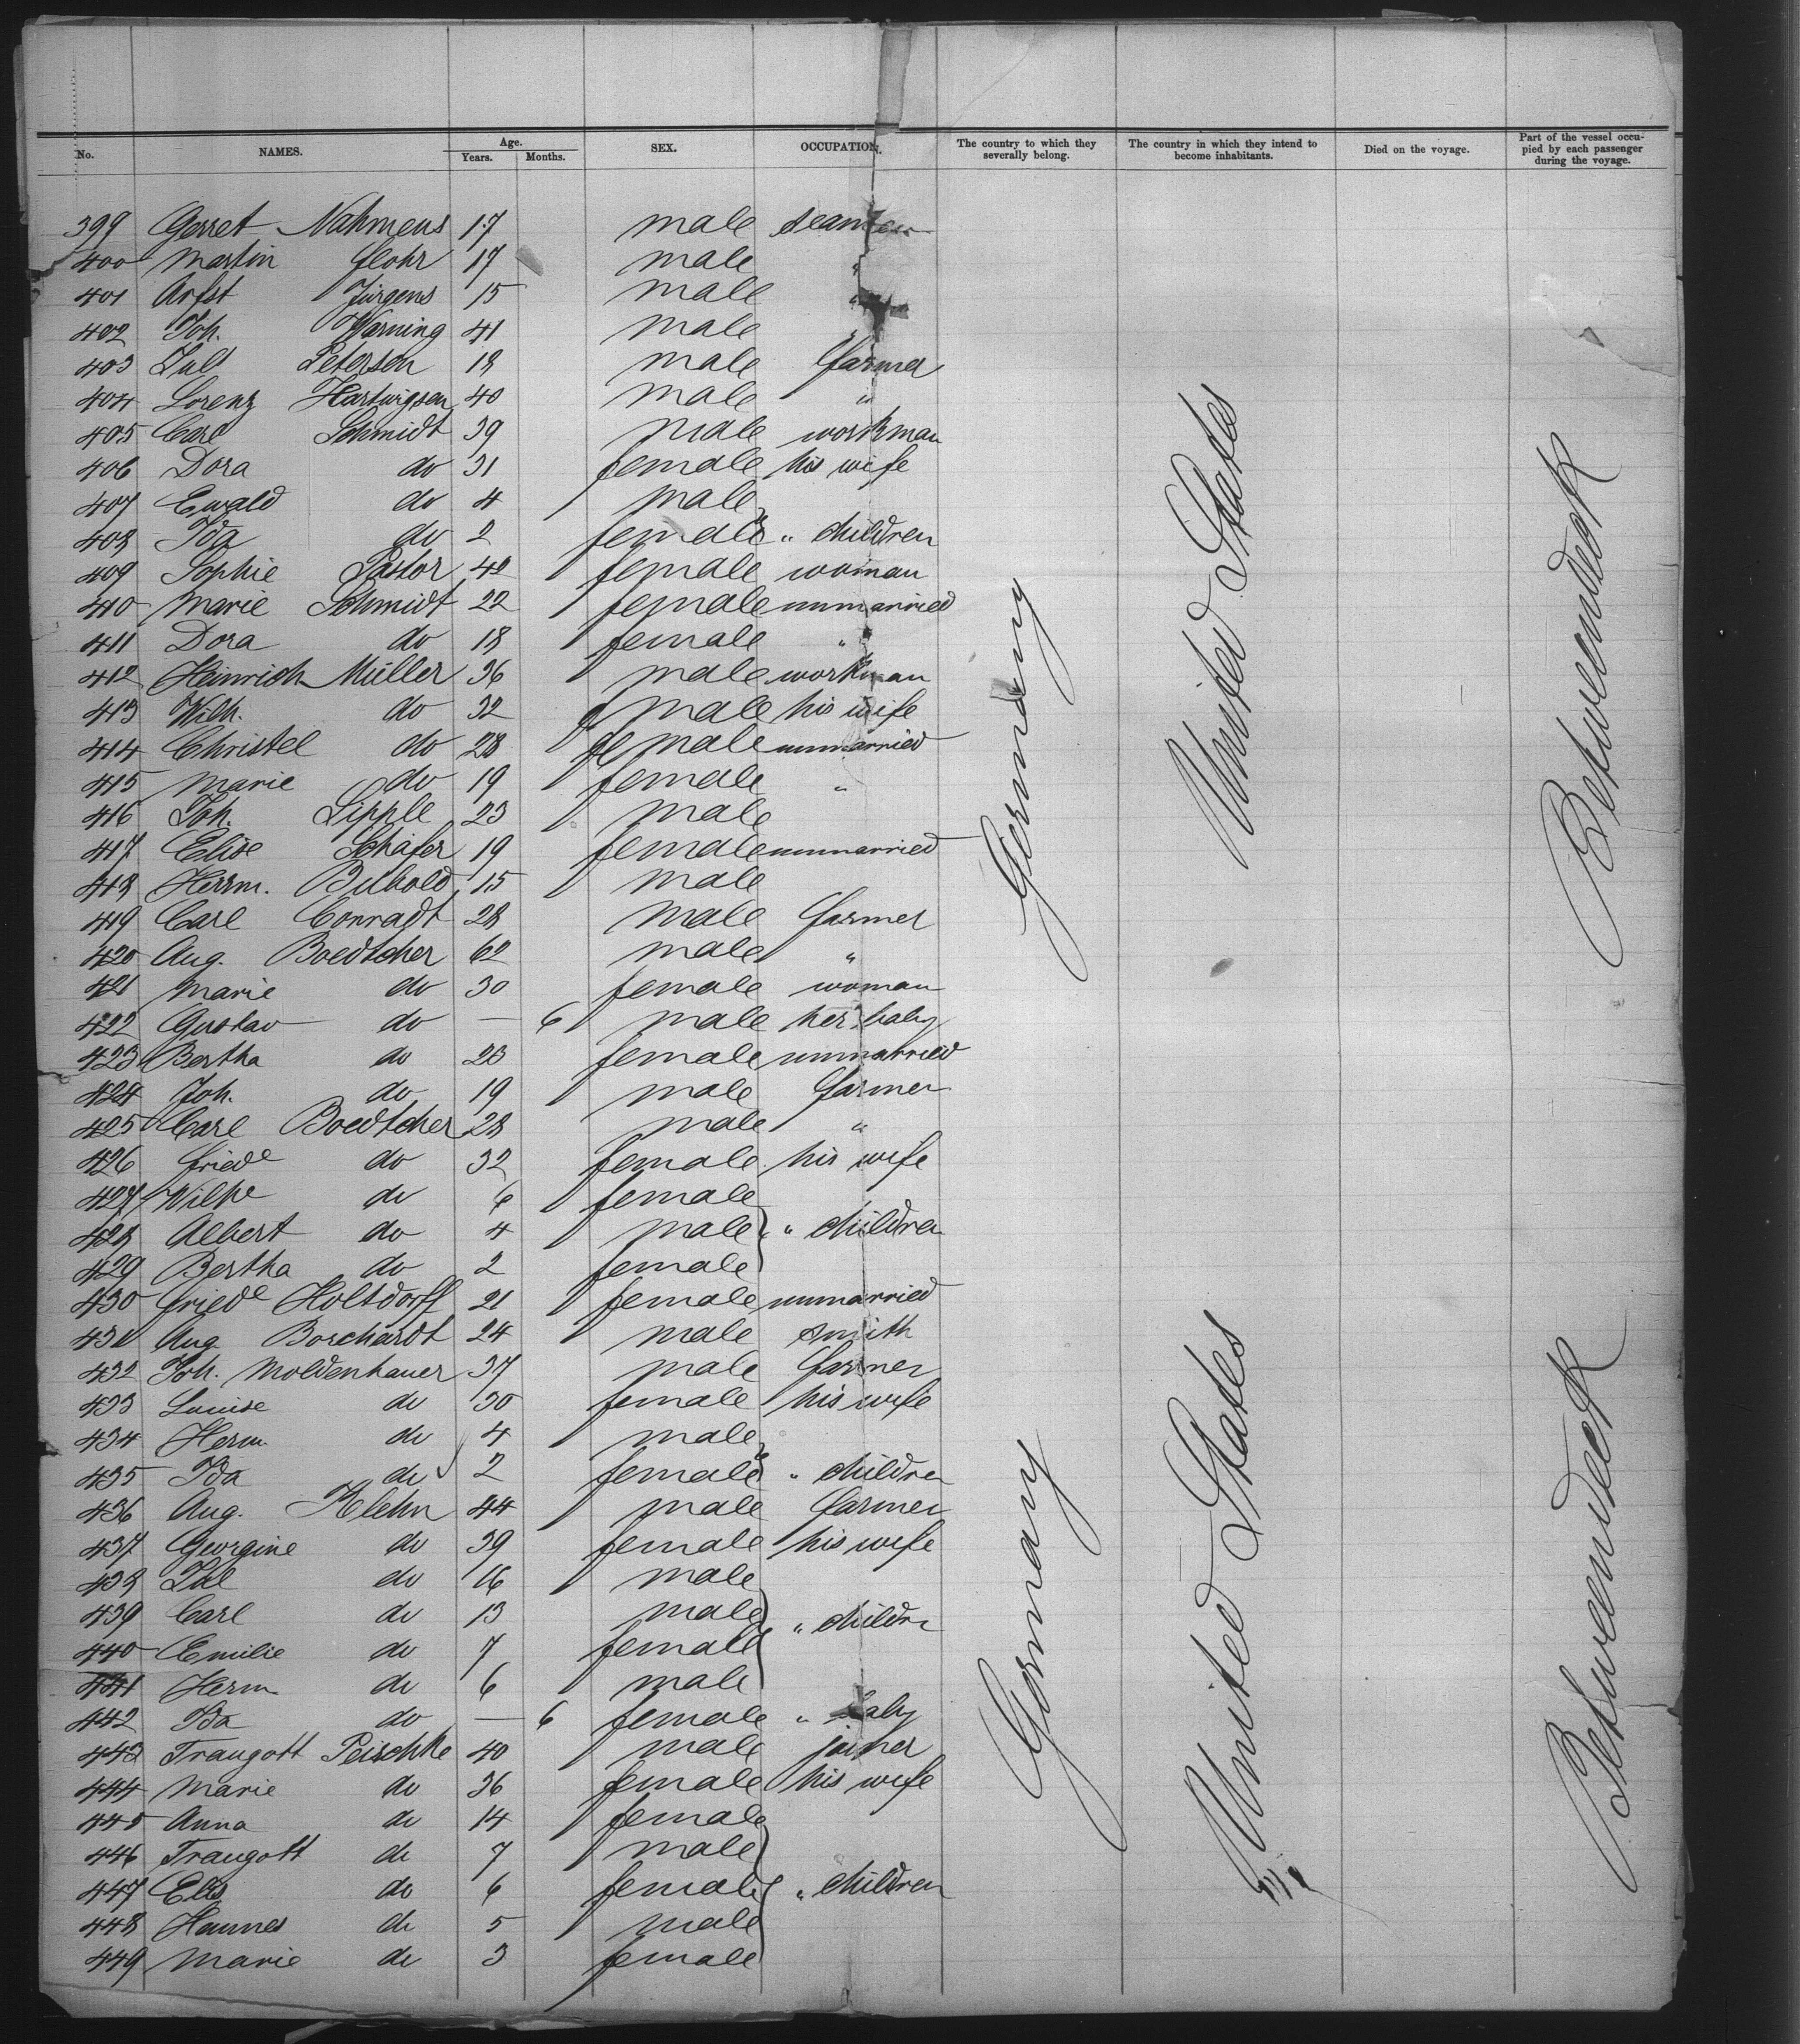 No. NAMES. Age. Years. Months. SEX. OCCUPATION. The country to which they severally belong. The country in which they intend to become inhabitants. Died on the voyage. Part of the vessel occupied by each passenger during the voyage.
399 Gerret Nahmens 17 male seaman
400 Martin Flohr 17 male "
401 Arfst Jürgens 15 male "
402 Joh. Warning 41 male "
403 Jul Petersen 18 male farmer
404 Lorenz Hartwigsen 40 male "
405 Carl Schmidt 39 male workman
406 Dora do 31 female his wife
407 Ewald do 4 male
408 Ida do 2 female " children
409 Sophie Pastor 42 female woman
410 Marie Schmidt 22 female unmarried
411 Dora do 18 female "
412 Heinrich Müller 36 male workman
413 Wilh. do 32 female his wife
414 Christel do 28 female unmarried
415 Marie do 19 female "
416 Joh. Lipple 23 male
417 Elise Schäfer 19 female unmarried
418 Herrm. Bubold 15 male
419 Carl Conradt 28 male farmer
420 Aug. Boedtcher 62 male "
421 Marie do 30 female woman
422 Gustav do — 6 male her baby
423 Bertha do 23 female unmarried
424 Joh. do 19 male farmer
425 Carl Boedtcher 28 male "
426 Friede do 32 female his wife
427 Wilhe do 6 female
428 Albert do 4 male " children
429 Bertha do 2 female
430 Friede Holtdorff 21 female unmarried
431 Aug. Borchardt 24 male smith
432 Joh. Moldenhauer 37 male farmer
433 Louise do 30 female his wife
434 Herm. do 4 male
435 Ida do 2 female " children
436 Aug. Klehn 44 male farmer
437 Georgine do 39 female his wife
438 Jul do 16 male
439 Carl do 13 male " children
440 Emilie do 7 female
441 Herm. do 6 male
442 Ida do — 6 female " baby
443 Traugott Peischke 40 male joiner
444 Marie do 36 female his wife
445 Anna do 14 female
446 Traugott do 7 male
447 Elis do 6 female " children
448 Hannes do 5 male
449 Marie do 3 female
Germany
United States
Betweendeck
Germany
United States
Betweendeck